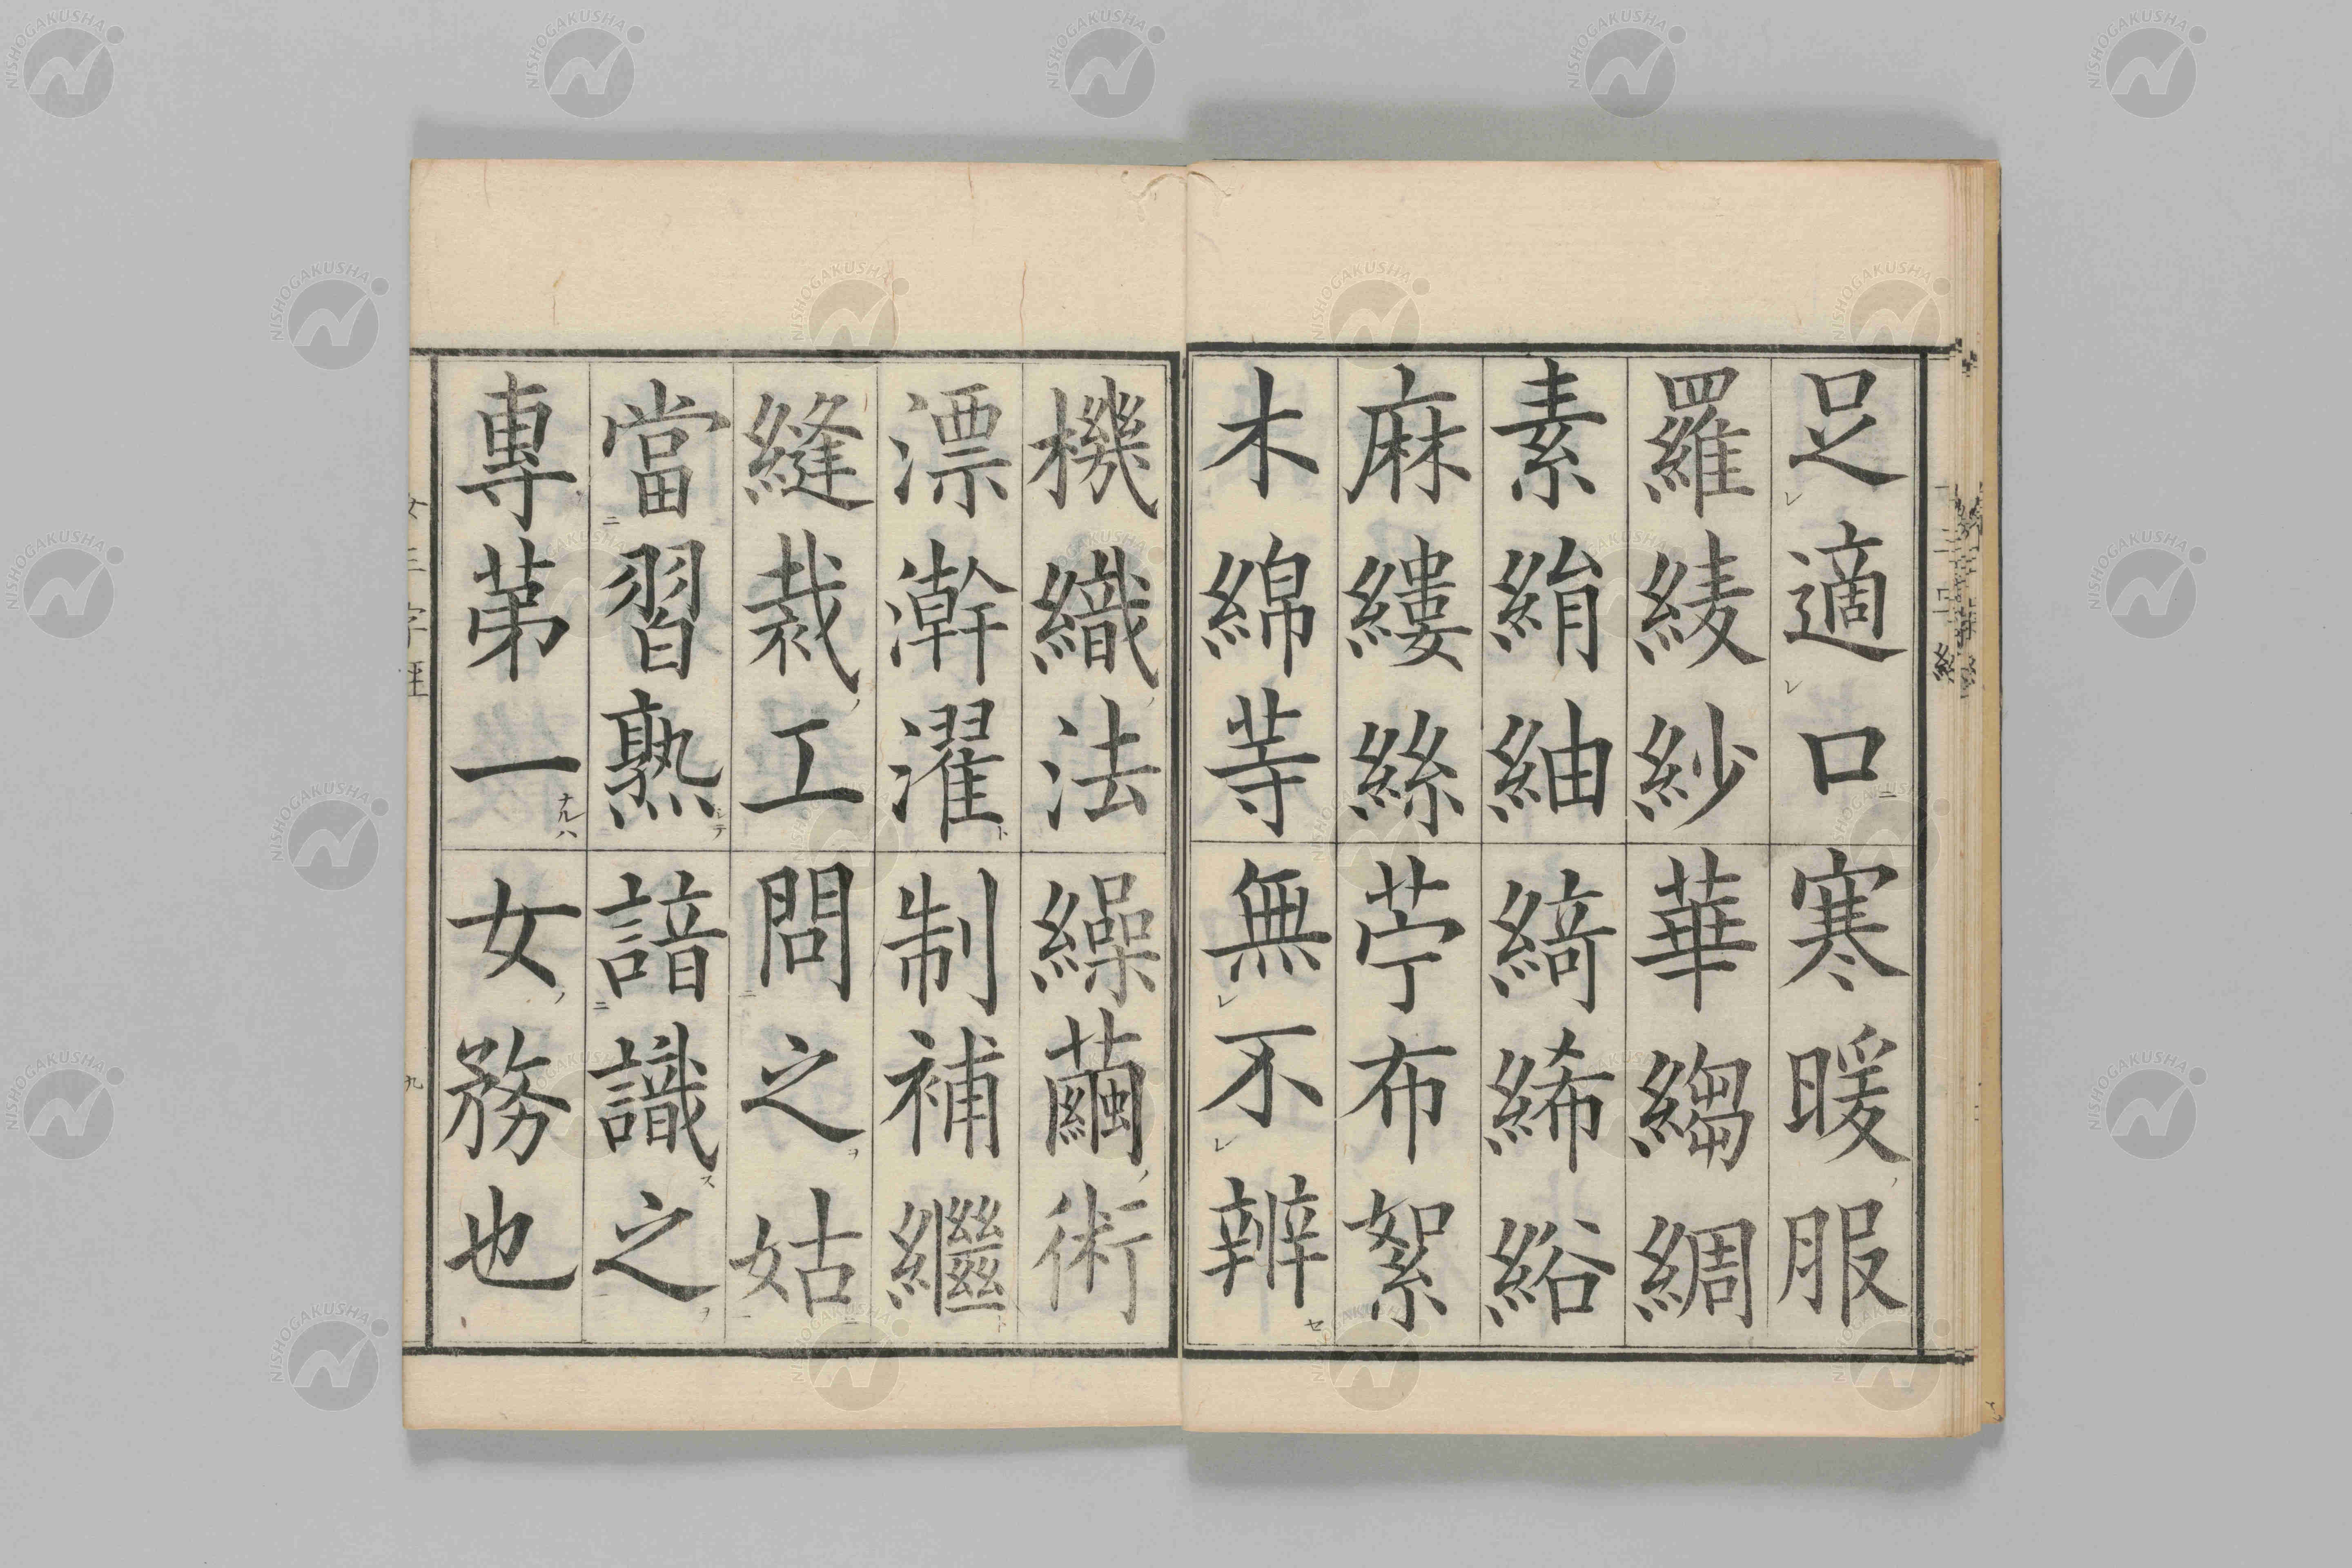 足適口寒暖服
羅綾紗華縐綢
素絹紬綺絺綌
麻縷絲苧布絮
木綿䓁無不辨
機織法繰繭術
漂澣濯制補繼
縫裁工問之姑
當習熟諳識之
專苐一女務也
女三字經
九
NISHOGAKUSHA